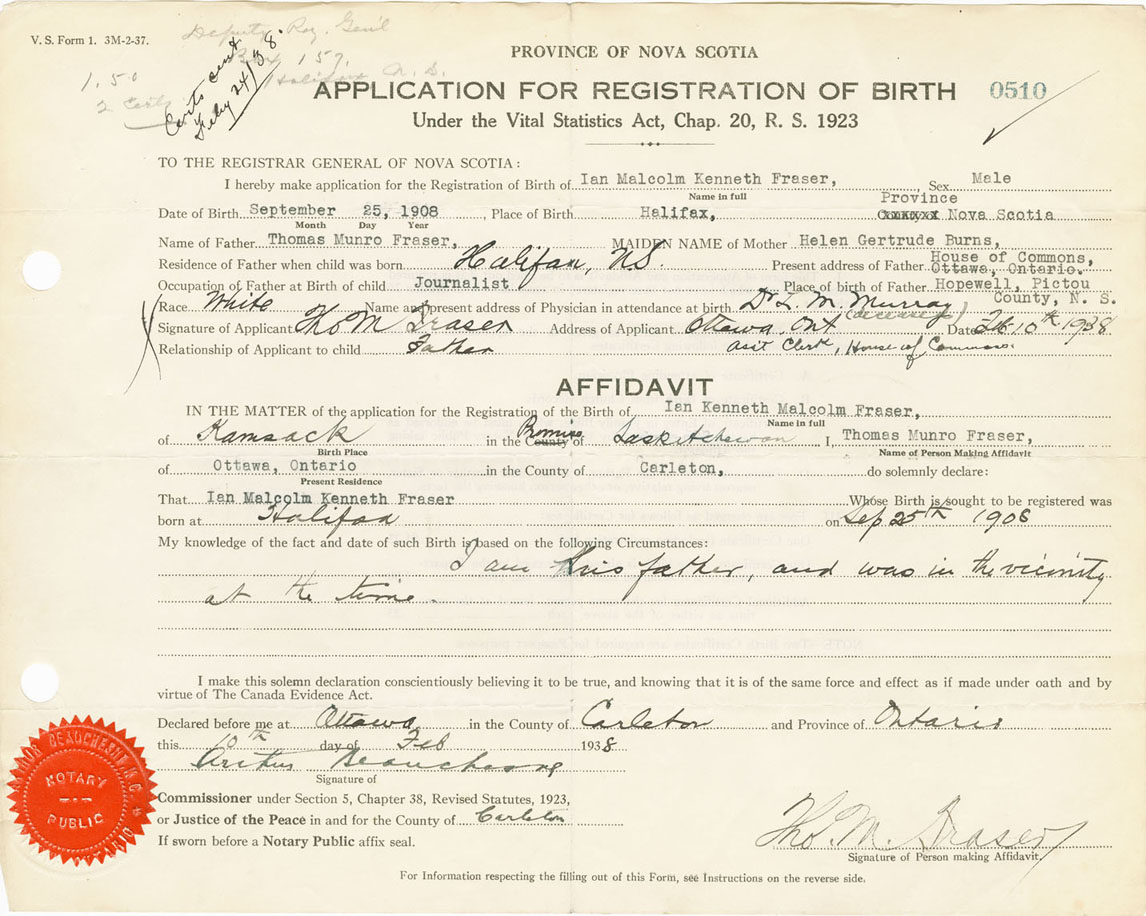 V. S. Form 1. 3M-2-37.
Deputy Reg. Gen'l
Box 157.
Halifax N. S.
1.50
2 Certs
Certs sent
Feby 24/38.
PROVINCE OF NOVA SCOTIA
APPLICATION FOR REGISTRATION OF BIRTH 0510
Under the Vital Statistics Act, Chap. 20, R. S. 1923
TO THE REGISTRAR GENERAL OF NOVA SCOTIA:
I hereby make application for the Registration of Birth of Ian Malcolm Kenneth Fraser, Sex Male
Name in full
Date of Birth September 25, 1908, Place of Birth Halifax, Province Nova Scotia
Month Day Year
Name of Father Thomas Munro Fraser, MAIDEN NAME of Mother Helen Gertrude Burns,
Residence of Father when child was born Halifax, NS. Present address of Father House of Commons, Ottawa, Ontario.
Occupation of Father at Birth of child Journalist Place of birth of Father Hopewell, Pictou County, N. S.
Race White Name and present address of Physician in attendance at birth Dr L. M. Murray (deceased)
Signature of Applicant Tho M Fraser Address of Applicant Ottawa, Ont Date Feb 10th 1938
Relationship of Applicant to child Father Asst Clerk, House of Commons.
AFFIDAVIT
IN THE MATTER of the application for the Registration of the Birth of Ian Kenneth Malcolm Fraser,
Name in full
of Kamsack in the County Province of Saskatchewan I, Thomas Munro Fraser,
Birth Place Name of Person Making Affidavit
of Ottawa, Ontario in the County of Carleton, do solemnly declare:
Present Residence
That Ian Malcolm Kenneth Fraser Whose Birth is sought to be registered was
born at Halifax on Sep 25th 1908
My knowledge of the fact and date of such Birth is based on the following Circumstances:
I am his father, and was in the vicinity
at the time.
I make this solemn declaration conscientiously believing it to be true, and knowing that it is of the same force and effect as if made under oath and by
virtue of The Canada Evidence Act.
Declared before me at Ottawa in the County of Carleton and Province of Ontario
this 10th day of Feb 1938
Arthur Beauchesne
Signature of
Commissioner under Section 5, Chapter 38, Revised Statutes, 1923,
or Justice of the Peace in and for the County of Carleton
If sworn before a Notary Public affix seal.
NOTARY
PUBLIC
Tho. M. Fraser
Signature of Person making Affidavit
For Information respecting the filling out of this Form, see Instructions on the reverse side.